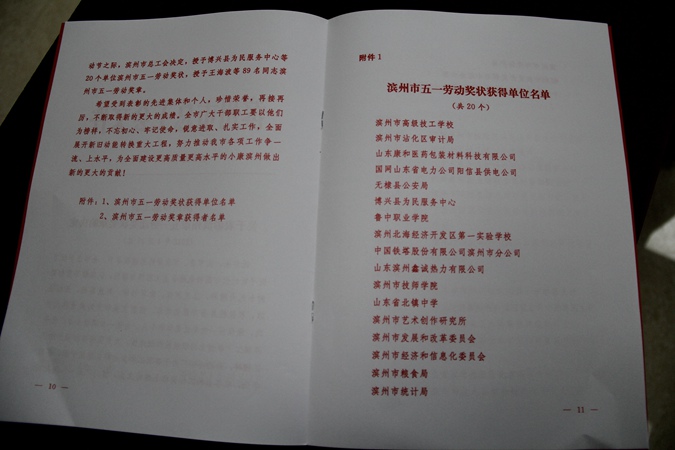 动节之际，滨州市总工会决定，授予博兴县为民服务中心等
20个单位滨州市五一劳动奖状，授予王海波等89名同志滨
州市五一劳动奖章。
希望受到表彰的先进集体和个人，珍惜荣誉，再接再
厉，不断取得新的更大的成绩。全市广大干部职工要以他们
为榜样，不忘初心、牢记使命，锐意进取、扎实工作，全面
展开新旧动能转换重大工程，努力推动我市各项工作争一
流、上水平，为全面建设更高质量更高水平的小康滨州做出
新的更大的贡献！
附件：1、滨州市五一劳动奖状获得单位名单
2、滨州市五一劳动奖章获得者名单
— 10 —
附件1
滨州市五一劳动奖状获得单位名单
（共20个）
滨州市高级技工学校
滨州市沾化区审计局
山东康和医药包装材料科技有限公司
国网山东省电力公司阳信县供电公司
无棣县公安局
博兴县为民服务中心
鲁中职业学院
滨州北海经济开发区第一实验学校
中国铁塔股份有限公司滨州市分公司
山东滨州鑫诚热力有限公司
滨州市技师学院
山东省北镇中学
滨州市艺术创作研究所
滨州市发展和改革委员会
滨州市经济和信息化委员会
滨州市粮食局
滨州市统计局
— 11 —